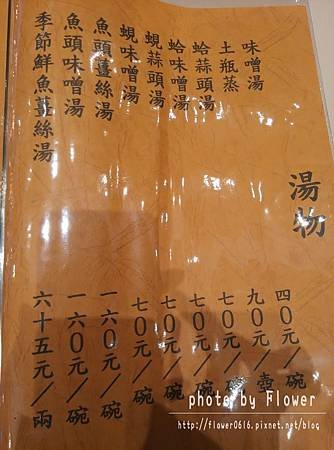 湯物
味噌湯 四〇元／碗
土瓶蒸 九〇元／壺
蛤蒜頭湯 七〇元／碗
蛤味噌湯 七〇元／碗
蜆蒜頭湯 七〇元／碗
蜆味噌湯 七〇元／碗
魚頭薑絲湯 一六〇元／碗
魚頭味噌湯 一六〇元／碗
季節鮮魚薑絲湯 六十五元／兩
photo by Flower
http://flower0616.pixnet.net/blog